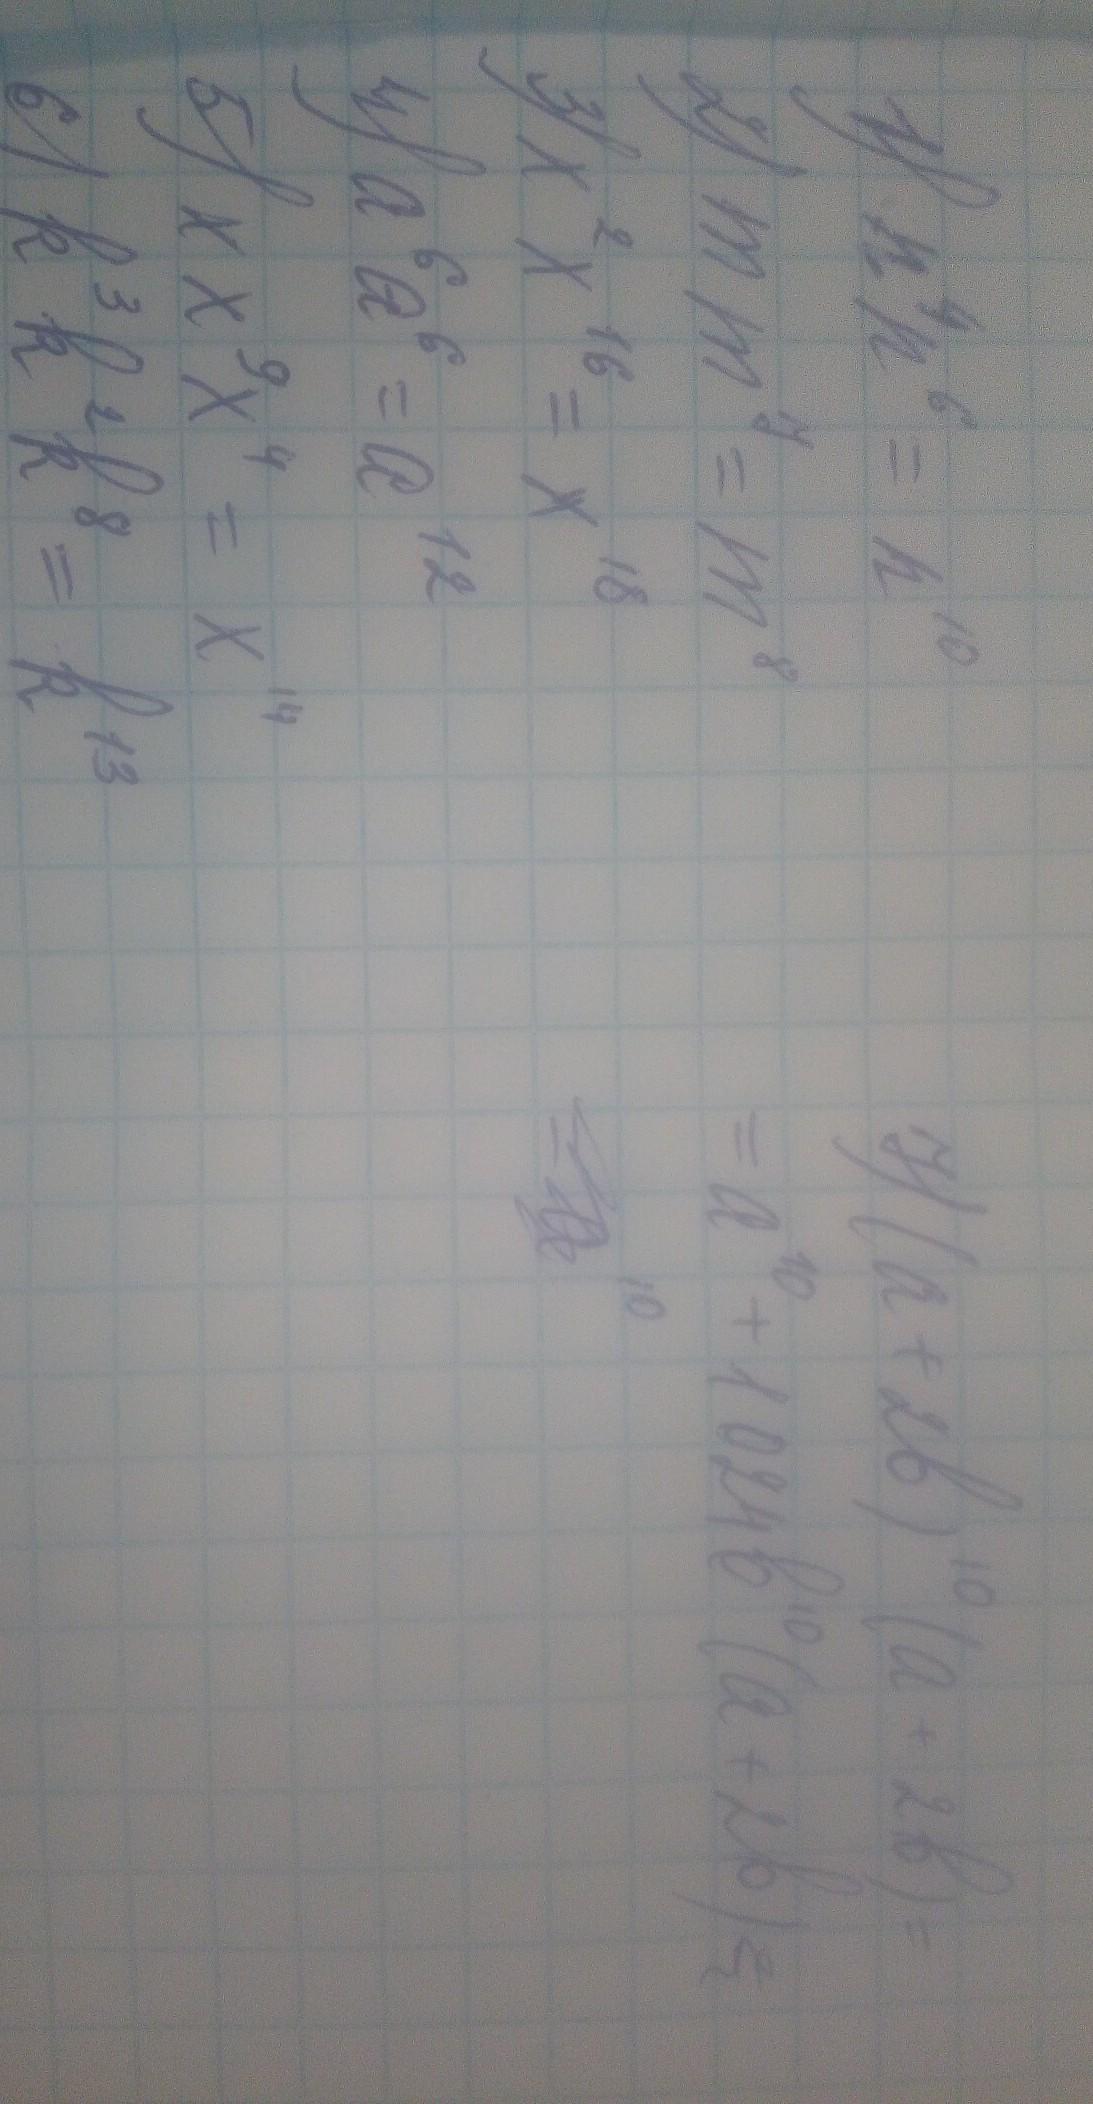 1) n⁴n⁶ = n¹⁰
2) m m⁷ = m⁸
3) x²x¹⁶ = x¹⁸
4) a⁶a⁶ = a¹²
5) x x⁹x⁴ = x¹⁴
6) k³k²k⁸ = k¹³
7) (a + 2b)¹⁰(a + 2b) =
= a¹⁰ + 1024b¹⁰(a + 2b) =